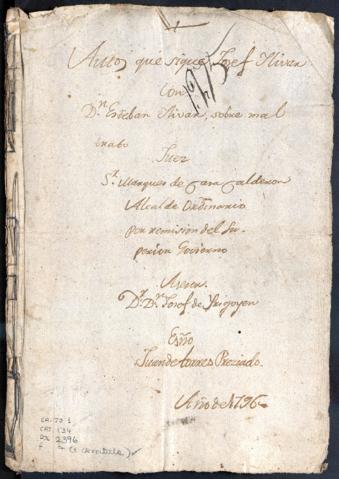 Autos que sigue Josef Nivan
con
Dn Esteban Nivan, sobre mal
trato
Juez
Sr Marques de Casa Calderon
Alcalde Ordinario
por remision del Su-
perior Govierno
Asesor
Dr Dn Josef de Yrigoyen
Essno
Juan de torres Preziado.
Año de 1796
CA. JO 1
CAJ 134
DOC 2396